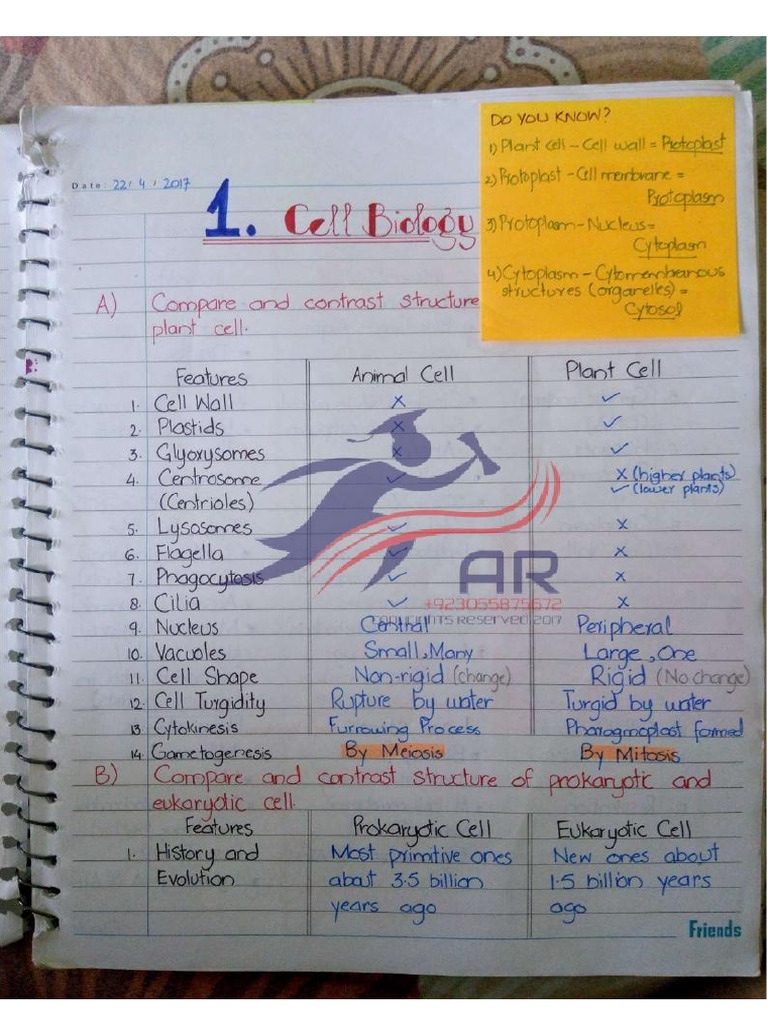 DO YOU KNOW?
1) Plant cell - Cell wall = Protoplast
2) Protoplast - Cell membrane =
Protoplasm
3) Protoplasm - Nucleus =
Cytoplasm
4) Cytoplasm - Cytomembranous
structures (organelles) =
Cytosol
Date: 22/4/2017
1. Cell Biology
A) Compare and contrast structure
plant cell.
Features Animal Cell Plant Cell
1. Cell Wall x ✓
2. Plastids x ✓
3. Glyoxysomes x ✓
4. Centrosome ✓ x (higher plants)
(Centrioles) ✓ (lower plants)
5. Lysosomes ✓ x
6. Flagella ✓ x
7. Phagocytosis ✓ x
8. Cilia ✓ x
9. Nucleus Central Peripheral
10. Vacuoles Small, Many Large, One
11. Cell Shape Non-rigid (change) Rigid (No change)
12. Cell Turgidity Rupture by water Turgid by water
13. Cytokinesis Furrowing Process Phragmoplast formed
14. Gametogenesis By Meiosis By Mitosis
B) Compare and contrast structure of prokaryotic and
eukaryotic cell.
Features Prokaryotic Cell Eukaryotic Cell
1. History and Most primitive ones New ones about
Evolution about 3.5 billion 1.5 billion years
years ago ago
Friends
AR
+923055875672
RESERVED 2017